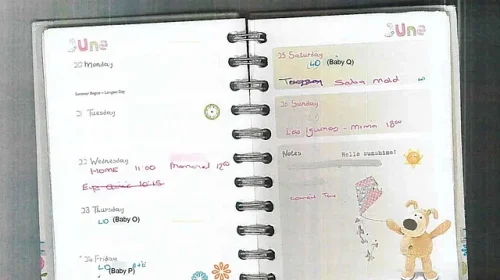 June
20 Monday
Summer Begins - Longest Day
21 Tuesday
22 Wednesday
HOME 11:00 Memorial 12
23 Thursday
LO (Baby O)
24 Friday
LO
(Baby P)
June
25 Saturday
LO (Baby Q)
Salsa
26 Sunday
Las Iguanas -
Notes
Hello sunshine!